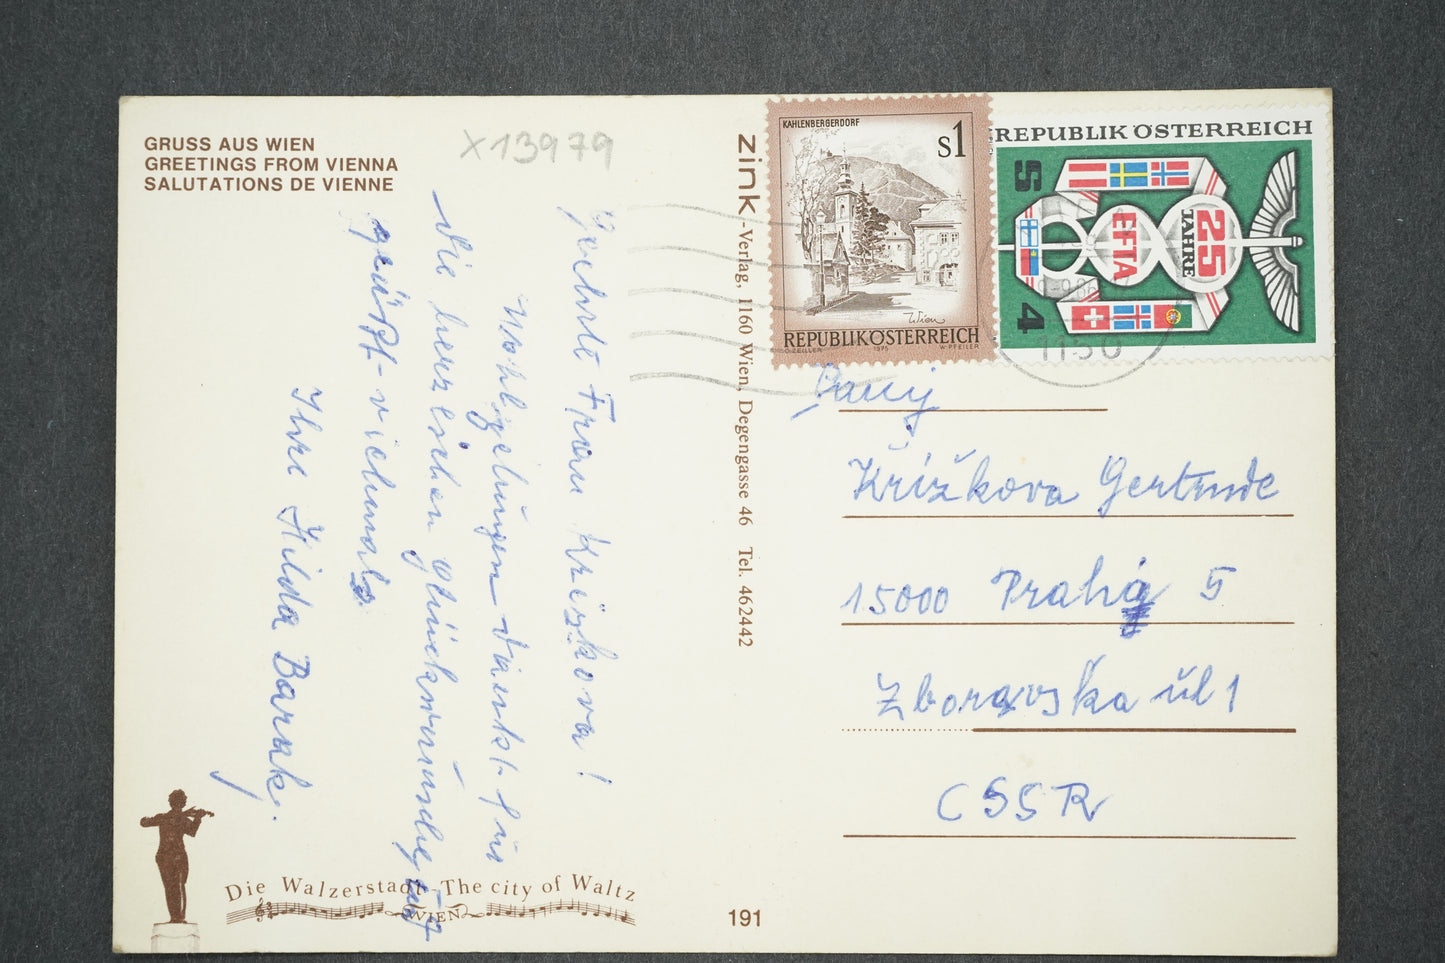 GRUSS AUS WIEN
GREETINGS FROM VIENNA
SALUTATIONS DE VIENNE
X13979
Geehrte Frau Križkova!
Wohlgelungen dankt für
die herzlichen glückwünsche und
grüßt vielmals
Ihre Hilda Barak.
Die Walzerstadt - The city of Waltz
WIEN
zink-Verlag, 1160 Wien, Degengasse 46 Tel. 462442
191
KAHLENBERGERDORF
S1
Wien
REPUBLIK ÖSTERREICH
O. ZEILLER 1975 W. PFEILER
REPUBLIK ÖSTERREICH
S 4
25 JAHRE
EFTA
1150
Paní
Křížkova Gertrude
15000 Praha 5
Zborovska úl 1
CSSR